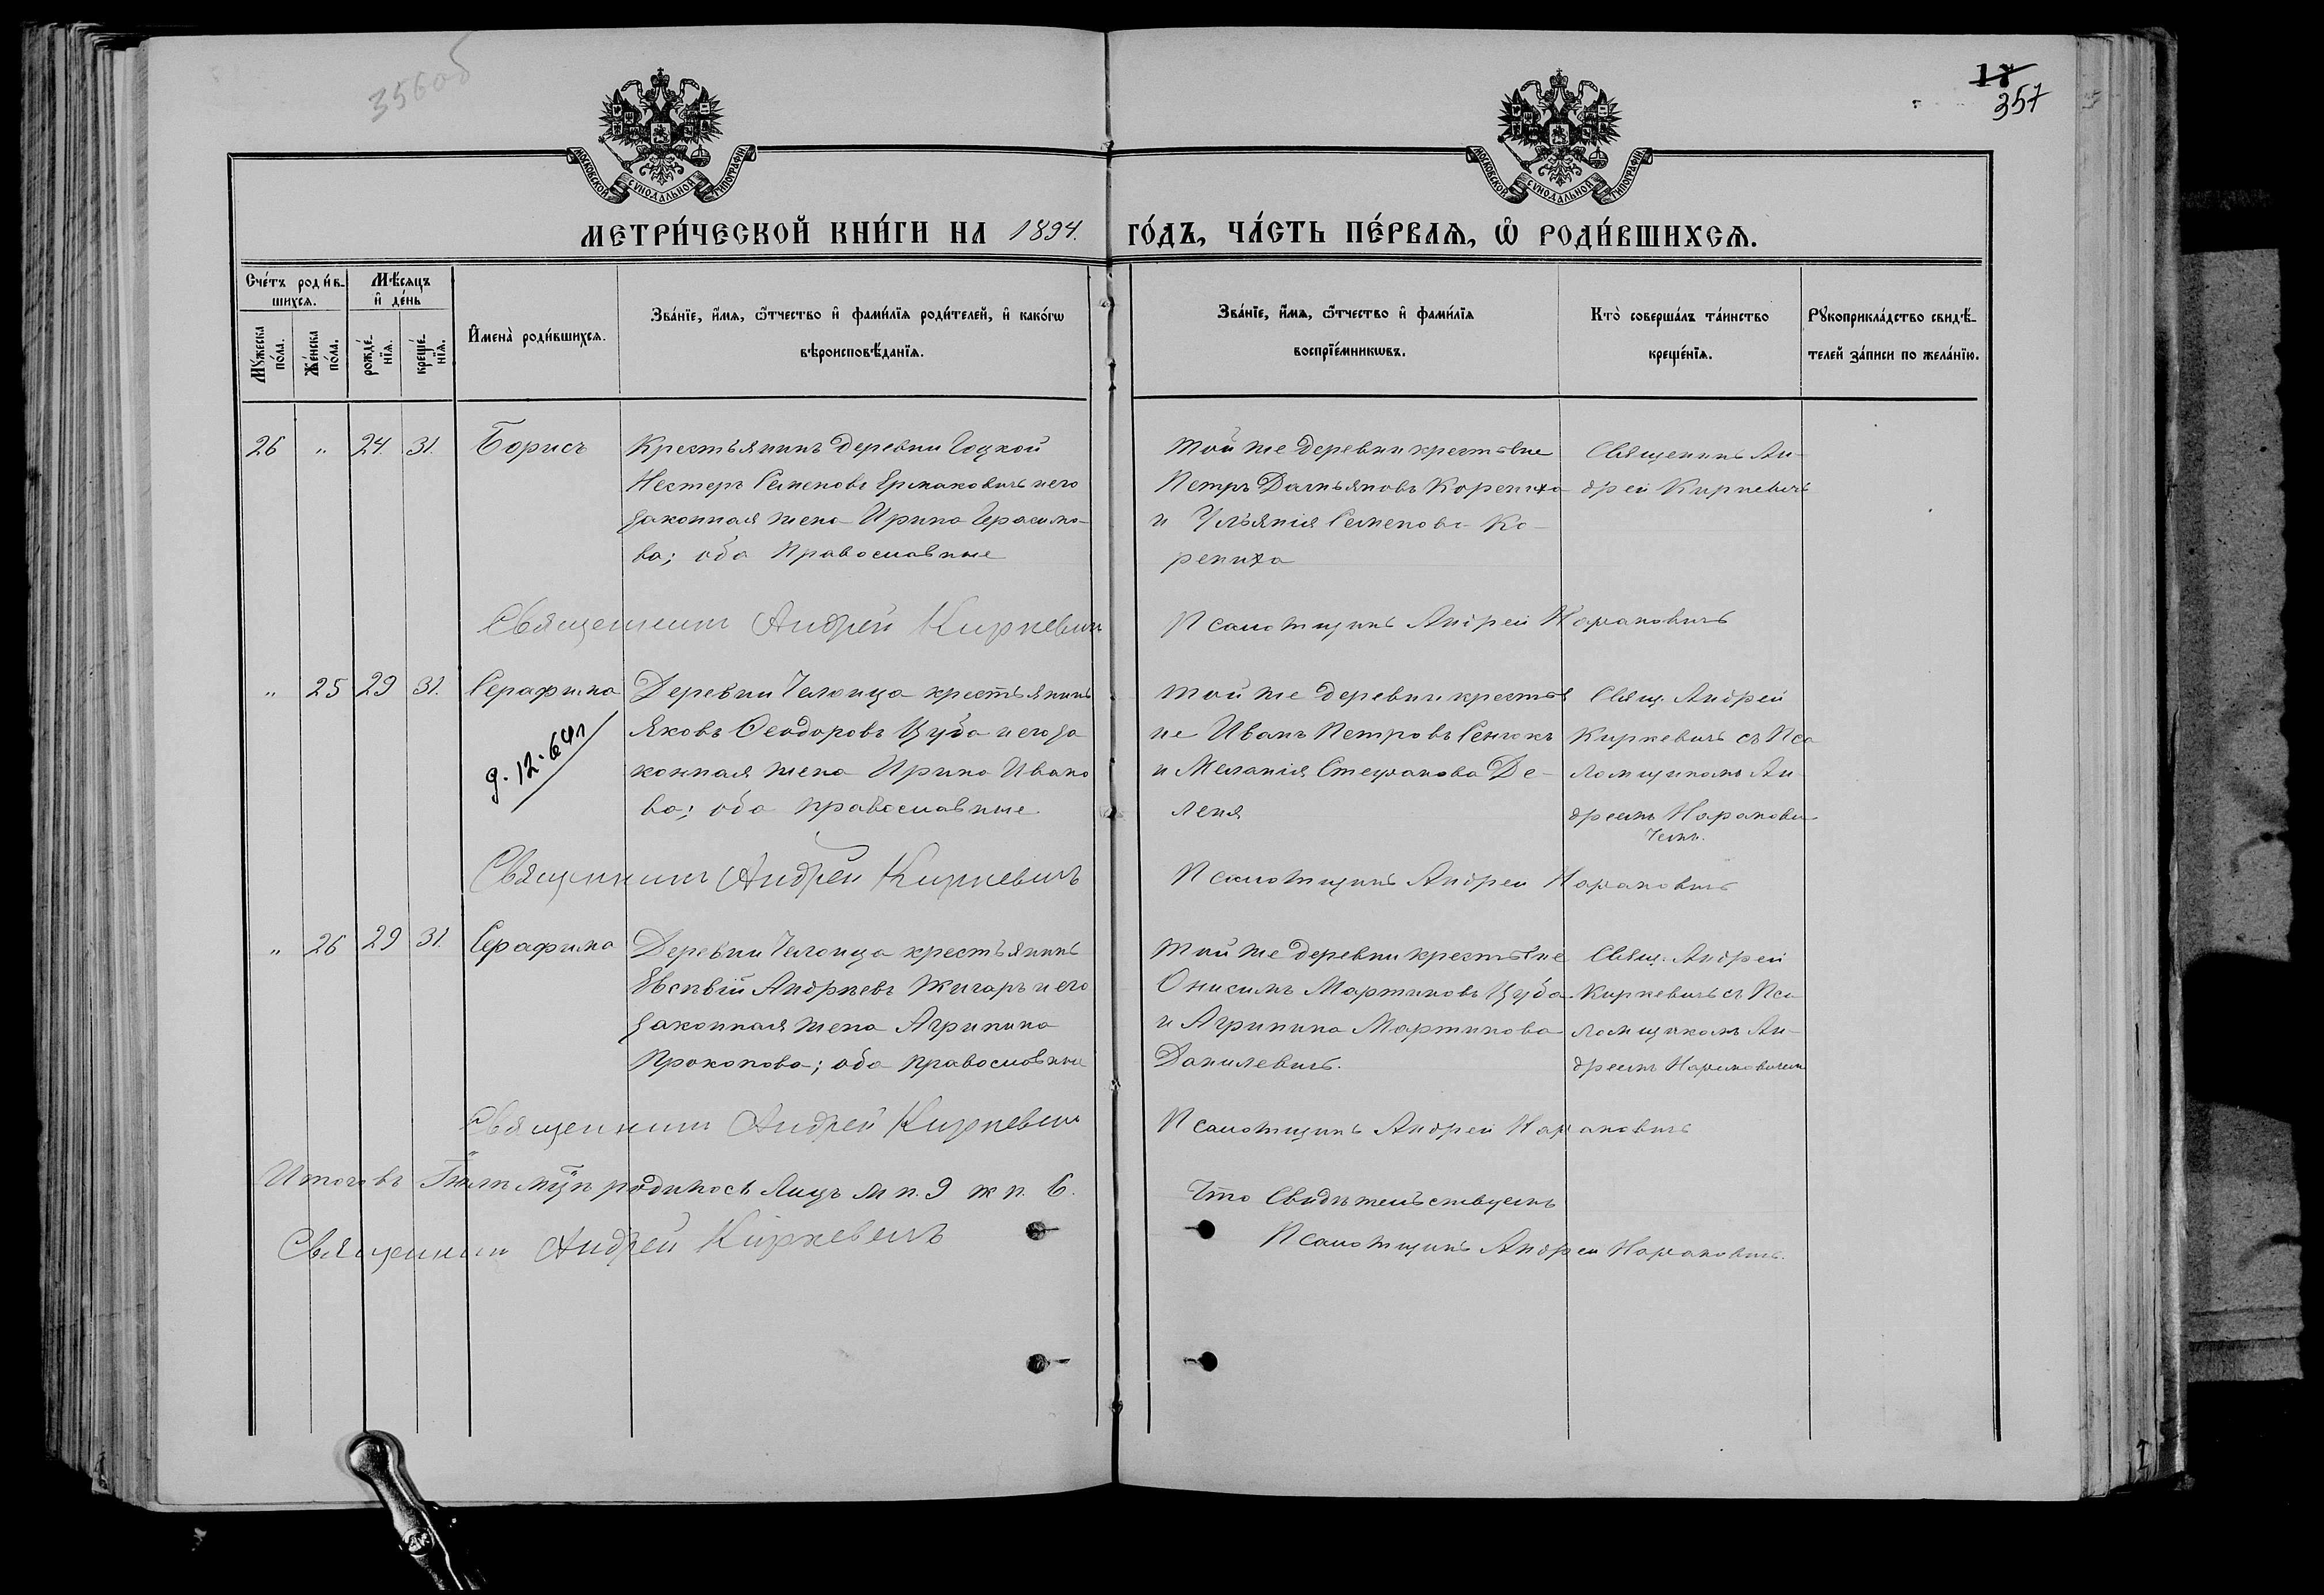 356об
18
357
МОСКОВСКОЙ СѴНОДАЛЬНОЙ ТИПОГРАФІИ.
МОСКОВСКОЙ СѴНОДАЛЬНОЙ ТИПОГРАФІИ.
МЕТРИ́ЧЕСКОЙ КНИ́ГИ НА 1894. ГО́ДЪ, ЧА́СТЬ ПЕ́РВАѦ, Ѽ РОДИ́ВШИХСѦ.
Сче́тъ роди́в-
шихсѧ.
Мѣ́сяцъ
и҆ де́нь
Мꙋ́жеска
по́ла.
Же́нска
по́ла.
рожде́-
нїѧ.
креще́-
нїѧ.
И҆мена̀ роди́вшихсѧ.
Зва́нїе, и҆́мѧ, ѻ҆́тчество и҆ фами́лїѧ роди́телей, и҆ како́гѡ
вѣроисповѣ́данїѧ.
Зва́нїе, и҆́мѧ, ѻ҆́тчество и҆ фами́лїѧ
воспрїе́мникѡвъ.
Кто̀ соверша́лъ та́инство
креще́нїѧ.
Рꙋкоприкла́дство свидѣ́-
телей за́писи по жела́нїю.
26 " 24. 31. Борисъ
Крестьянинъ деревни Гоцкой
Нестеръ Семеновъ Ермаковичъ и его
законная жена Ирина Герасимо-
ва; оба Православные
Той же деревни крестьяне
Петръ Дамьяновъ Корениха
и Ульянія Семенова Ко-
рениха
Священникъ Ан-
дрей Киркевичъ
Священникъ Андрей Киркевичъ
Псаломщикъ Андрей Наранович
" 25 29 31. Серафима
9.12.64г
Деревни Челонца крестьянинъ
Яковъ Ѳеодоровъ Цуба и его за
конная жена Ирина Ивано
ва; оба православные
Той же деревни крестья
не Иванъ Петровъ Сенюкъ
и Меланія Стефанова Де-
леня
Свящ. Андрей
Киркевичъ съ Пса
ломщикомъ Ан-
дреемъ Нарановi-
чемъ.
Священникъ Андрей Киркевичъ
Псаломщикъ Андрей Наранович
" 26 29 31. Серафима
Деревни Челонца крестьянинъ
Евсевій Андреевъ Жигаръ и его
законная жена Агрипина
Прокопова; оба православные
Той же деревни крестьяне
Онисимъ Мартиновъ Цуба
и Агрипина Мартинова
Данилевичъ.
Свящ. Андрей
Киркевичъ съ Пса
ломщикомъ Ан-
дреемъ Нарановичемъ
Священникъ Андрей Киркевичъ
Псаломщикъ Андрей Наранович
Итого въ Іюлѣ мцѣ родилось лицъ м п. 9 ж п. 6.
Что Свидѣтельствуемъ
Священникъ Андрей Киркевичъ
Псаломщикъ Андрей Наранович.